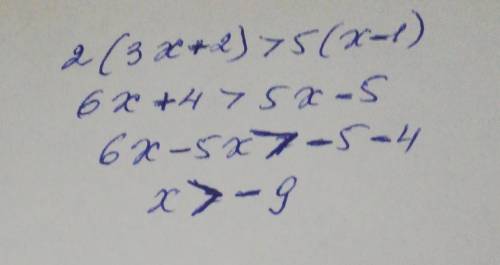 2(3x+2)>5(x-1)
6x+4>5x-5
6x-5x>-5-4
x>-9